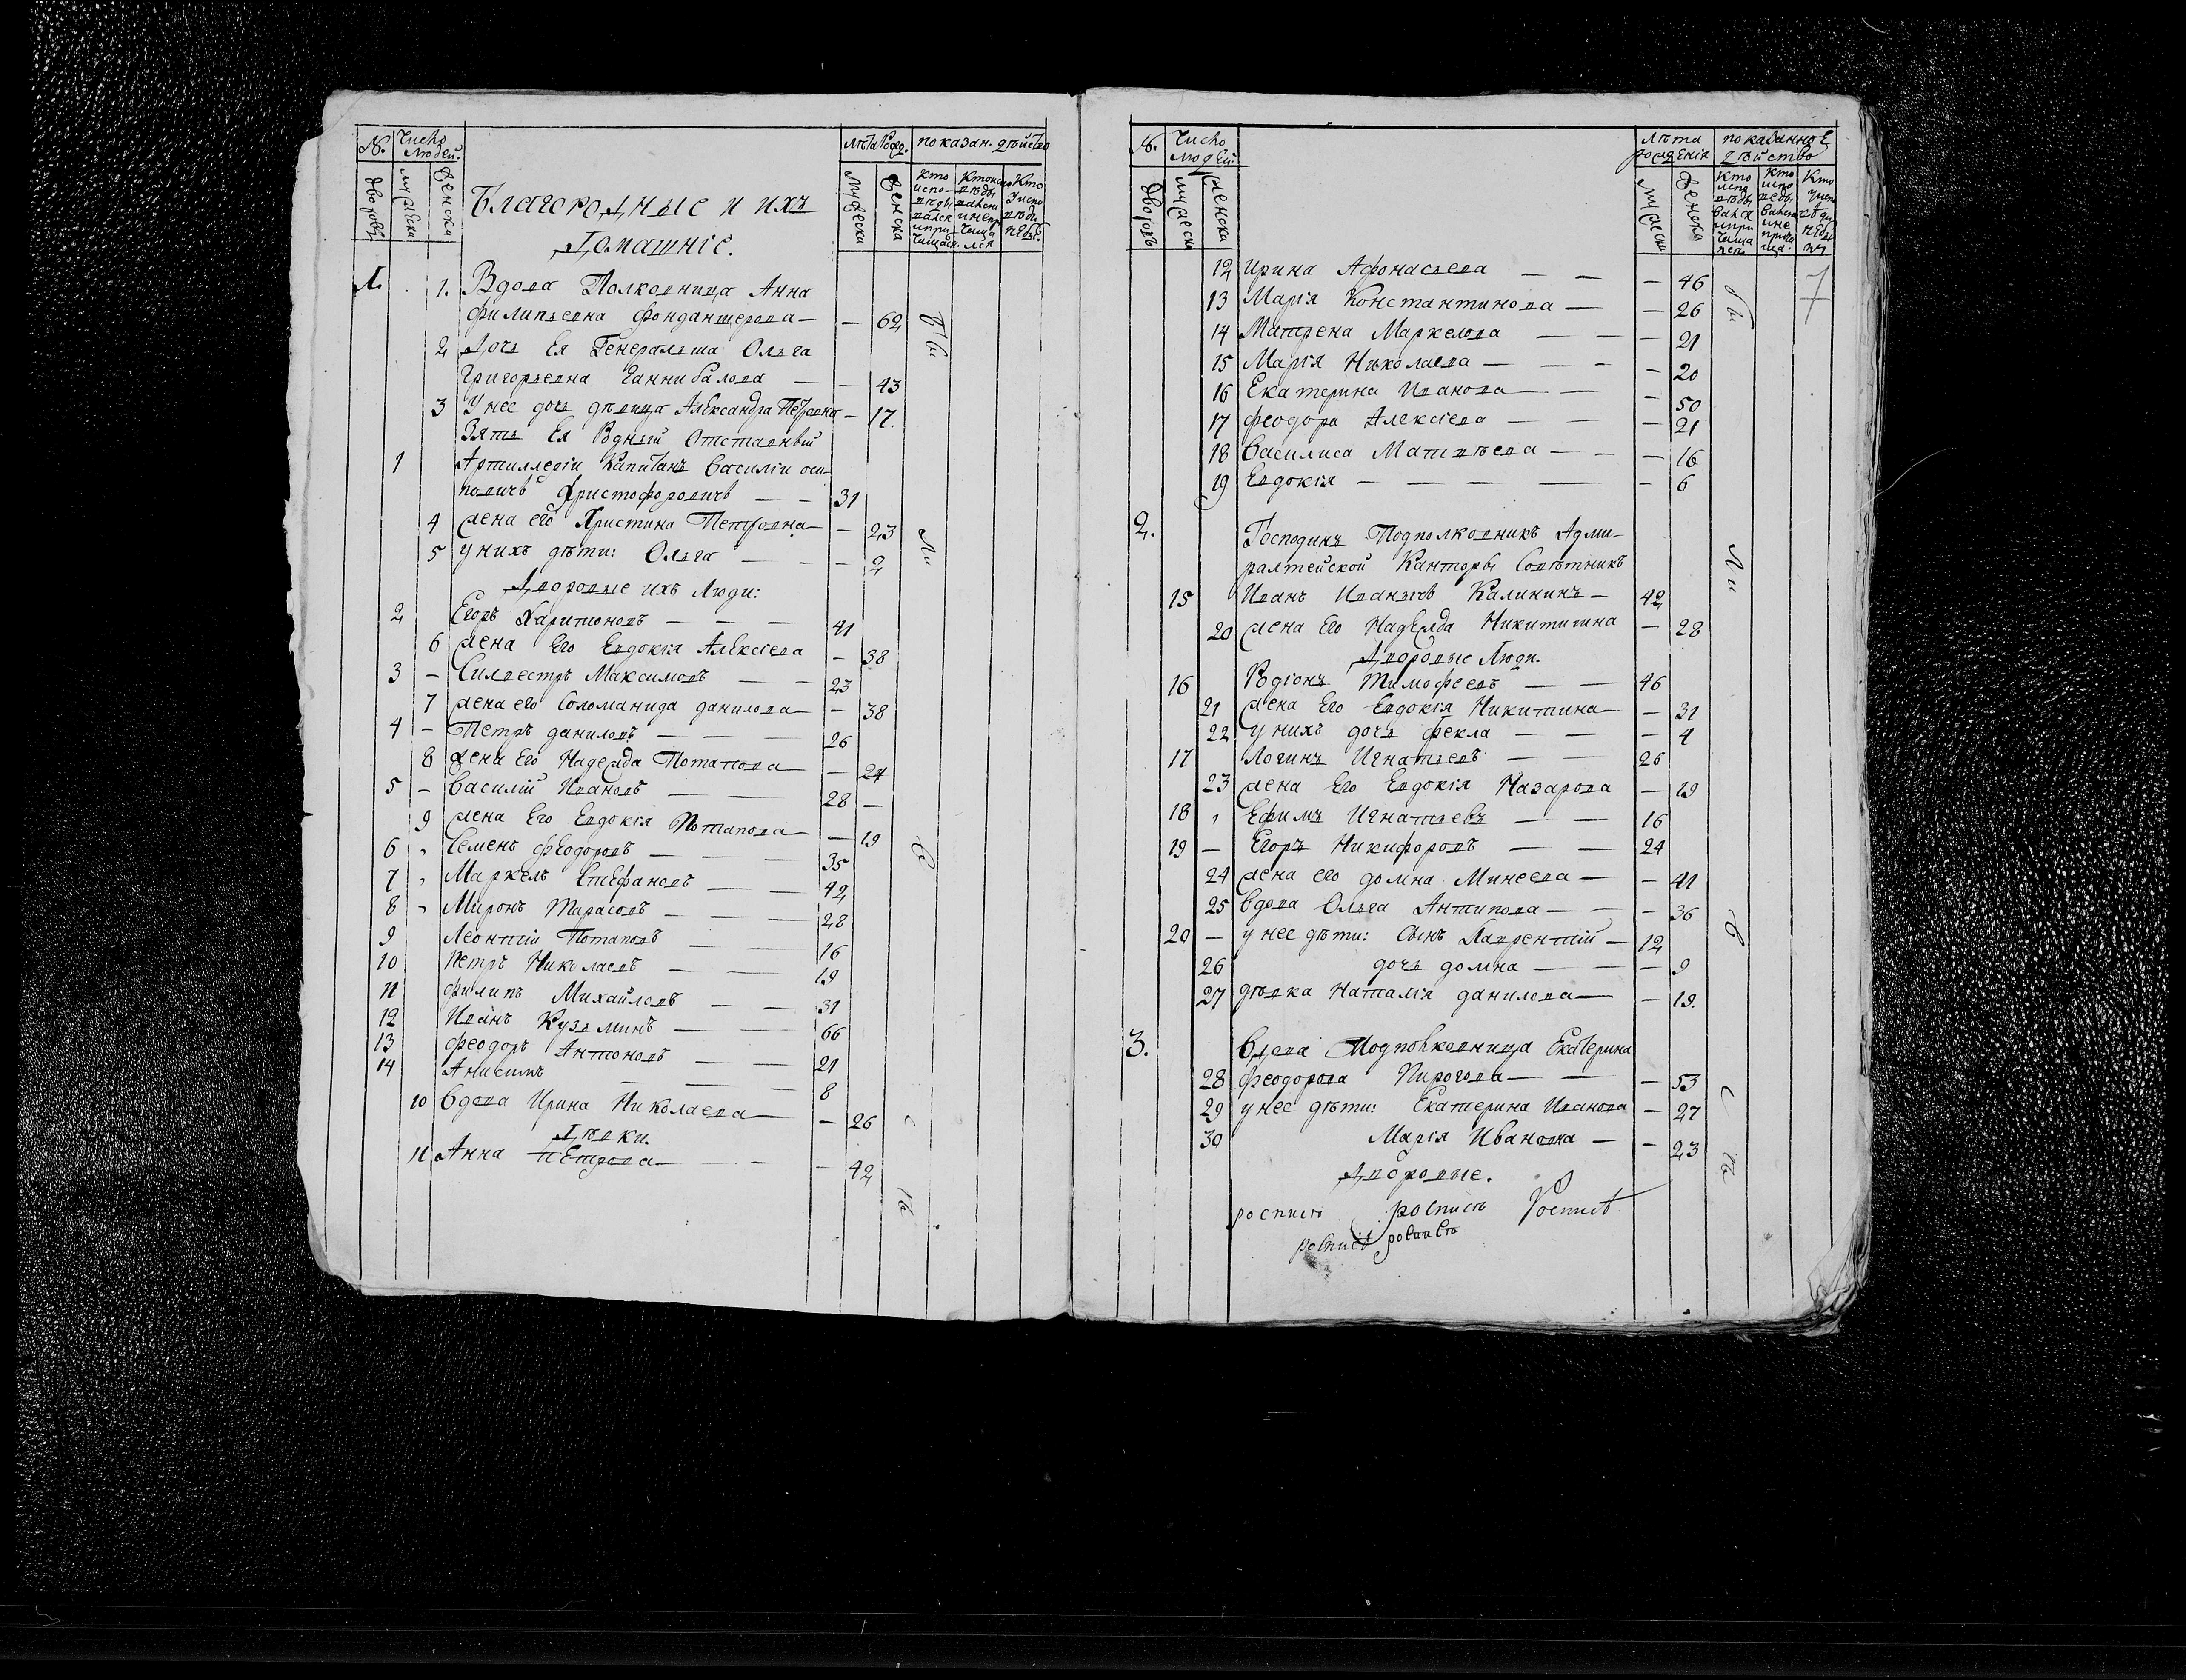 №. Число людей. лѣта рожд. показан. дѣйство
дворовъ мужеска женска мужеска женска
Благородные и ихъ
Домашніе.
1. 1. Вдова Полковница Анна
филипьевна фонданщерова — — 62
2 Дочь Ея Генеральша Ольга
Григорьевна Ганнибалова — — 43
3 У нее дочь дѣвица Александра Петровна — 17.
Зять Ея Родный Отставный
1 Артиллеріи Капитанъ Василіи оси
повичъ Христофоровичъ — — 31
4 жена его Христина Петровна — — 23
5 у нихъ дѣти: Ольга — — — 2
Дворовые ихъ Люди:
2 Егоръ Харитоновъ — — — 41
6 жена Его Евдокія Алексіева — 38
3 — Силвестръ Максимовъ — — 23
7 жена его Соломанида данилова — — 38
4 — Петръ даниловъ — — — 26
8 жена Его Надежда Потапова — — 24
5 — Василій Ивановъ — — 28 —
9 жена Его Евдокія Потапова — — 19
6 Семенъ Феодоровъ — — — 35
7 Маркелъ Стефановъ — — 42
8 Миронъ Тарасовъ — — — 28
9 Леонтій Потаповъ — — 16
10 Петръ Николаевъ — — 19
11 филипъ Михайловъ — — 31
12 Иванъ Кузьминъ — — 66
13 феодоръ Антоновъ — — 21
14 Анисимъ — — — 8
10 Вдова Ирина Николаева — — 26
Дѣвки.
11 Анна Петрова — — — 42
№. Число людей лѣта рожденія показанное дѣйство
дворовъ мужеска женска мужеска женска
7
12 Ирина Афонасьева — — — 46
13 Марія Константинова — — 26
14 Матрена Маркелова — — — 21
15 Марія Николаева — — — — 20
16 Екатерина Иванова — — — 50
17 феодора Алексіева — — — 21
18 Василиса Матвѣева — — — 16
19 Евдокія — — — — — 6
2. Господинъ Подполковникъ Адми-
ралтейской Канторы Совѣтникъ
15 Иванъ Иванычъ Калининъ — 42
20 жена Его Надежда Никитична — 28
Дворовые Люди.
16 Родіонъ Тимофеевъ — — 46
21 жена Его Евдокія Никитина — — 31
22 у нихъ дочь фекла — — — 4
17 Логинъ Игнатьевъ — — 26
23 жена Его Евдокія Назарова — 19
18 Ефимъ Игнатьевъ — — 16
19 — Егоръ Никифоровъ — — 24
24 жена его домна Минеева — — 41
25 Вдова Ольга Антипова — — — 36
20 — у нее дѣти: Сынъ Лаврентій — 12
26 дочь домна — — — 9
27 дѣвка Наталія данилова — — 19.
3. Вдова Подполковница Екатерина
28 Феодорова Пирогова — — — 53
29 у нее дѣти: Екатерина Иванова — 27
30 Марія Ивановна — — 23
Дворовые.
роспись роспись Роспись
роспись роспись